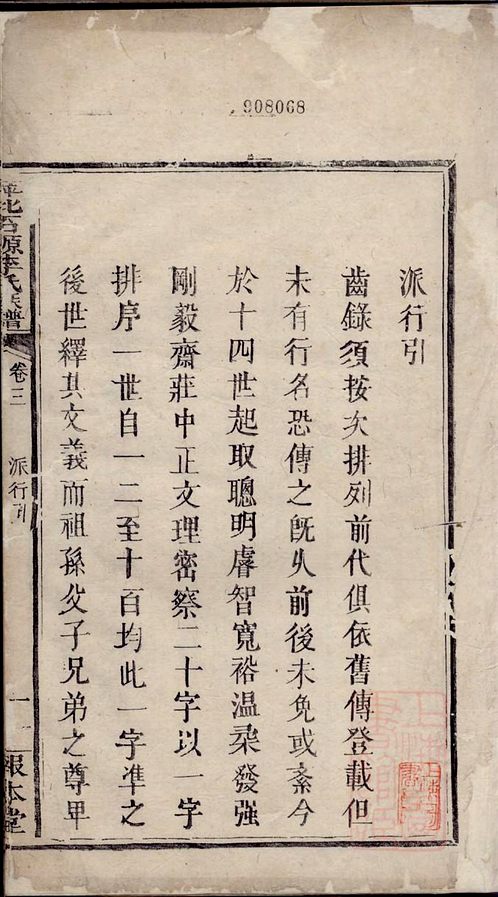 908068
派行引
齒錄須按次排列前代俱依舊傳登載但
未有行名恐傳之既久前後未免或紊今
於十四世起取聰明睿智寬裕温柔發强
剛毅齋莊中正文理密察二十字以一字
排序一世自一二至十百均此一字準之
後世繹其文義而祖孫父子兄弟之尊卑
北石源李氏族譜
卷三
派行引
一
報本堂